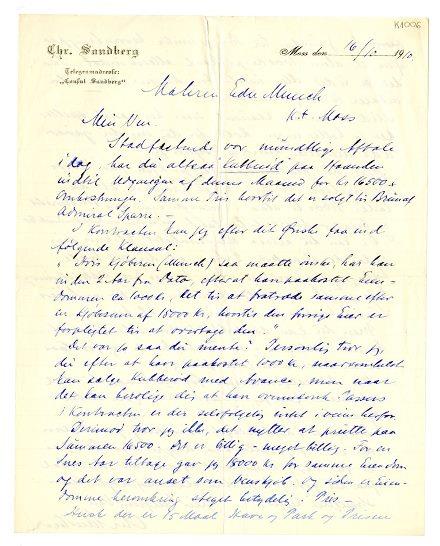 K1006
Chr. Sandberg
Telegramadresse:
„Consul Sandberg"
Moss den 16/10 1910
Maleren Edv Munch
h.t. Moss
Min Ven.
Stadfæstende vor mundtlige Aftale
idag, har du altsaa paa Haanden
indtil Udgangen af denne Maaned for kr 16500 &
Omkostninger. Samme Pris hvortil det er solgt til
Admiral Sparre. –
I Kontracten kan jeg efter dit Ønske faa ind
følgende Klausul:
"Hvis Kjöberen (Munch) saa maatte önske, har han
inden 2 Aar fra Dato, efter at han paakostet Eien-
dommen ca 1000 kr, Ret til at fratræde samme efter
en Kjöbesum af 18000 kr, hvortil den forrige Eier er
forpligtet til at overtage den."
Det var jo saa du mente? Personlig tror jeg
du efter at have paakostet 1000 kr,
kan sælge med Avance, men naar
det kan berolige dig at han
i Kontracten er der selvfølgelig intet i veien herfor.
Derimod tror jeg ikke, det nytter at prutte paa
Summen 16500. Det er billig – meget billig. For en
Snes Aar tilbage gav jeg 18000 kr for samme Eiendom
og det var anset som Venskjöb. Og siden er Eien-
domme heromkring steget betydelig i Pris. –
Husk der er 15 Maal Have og Park og Prisen